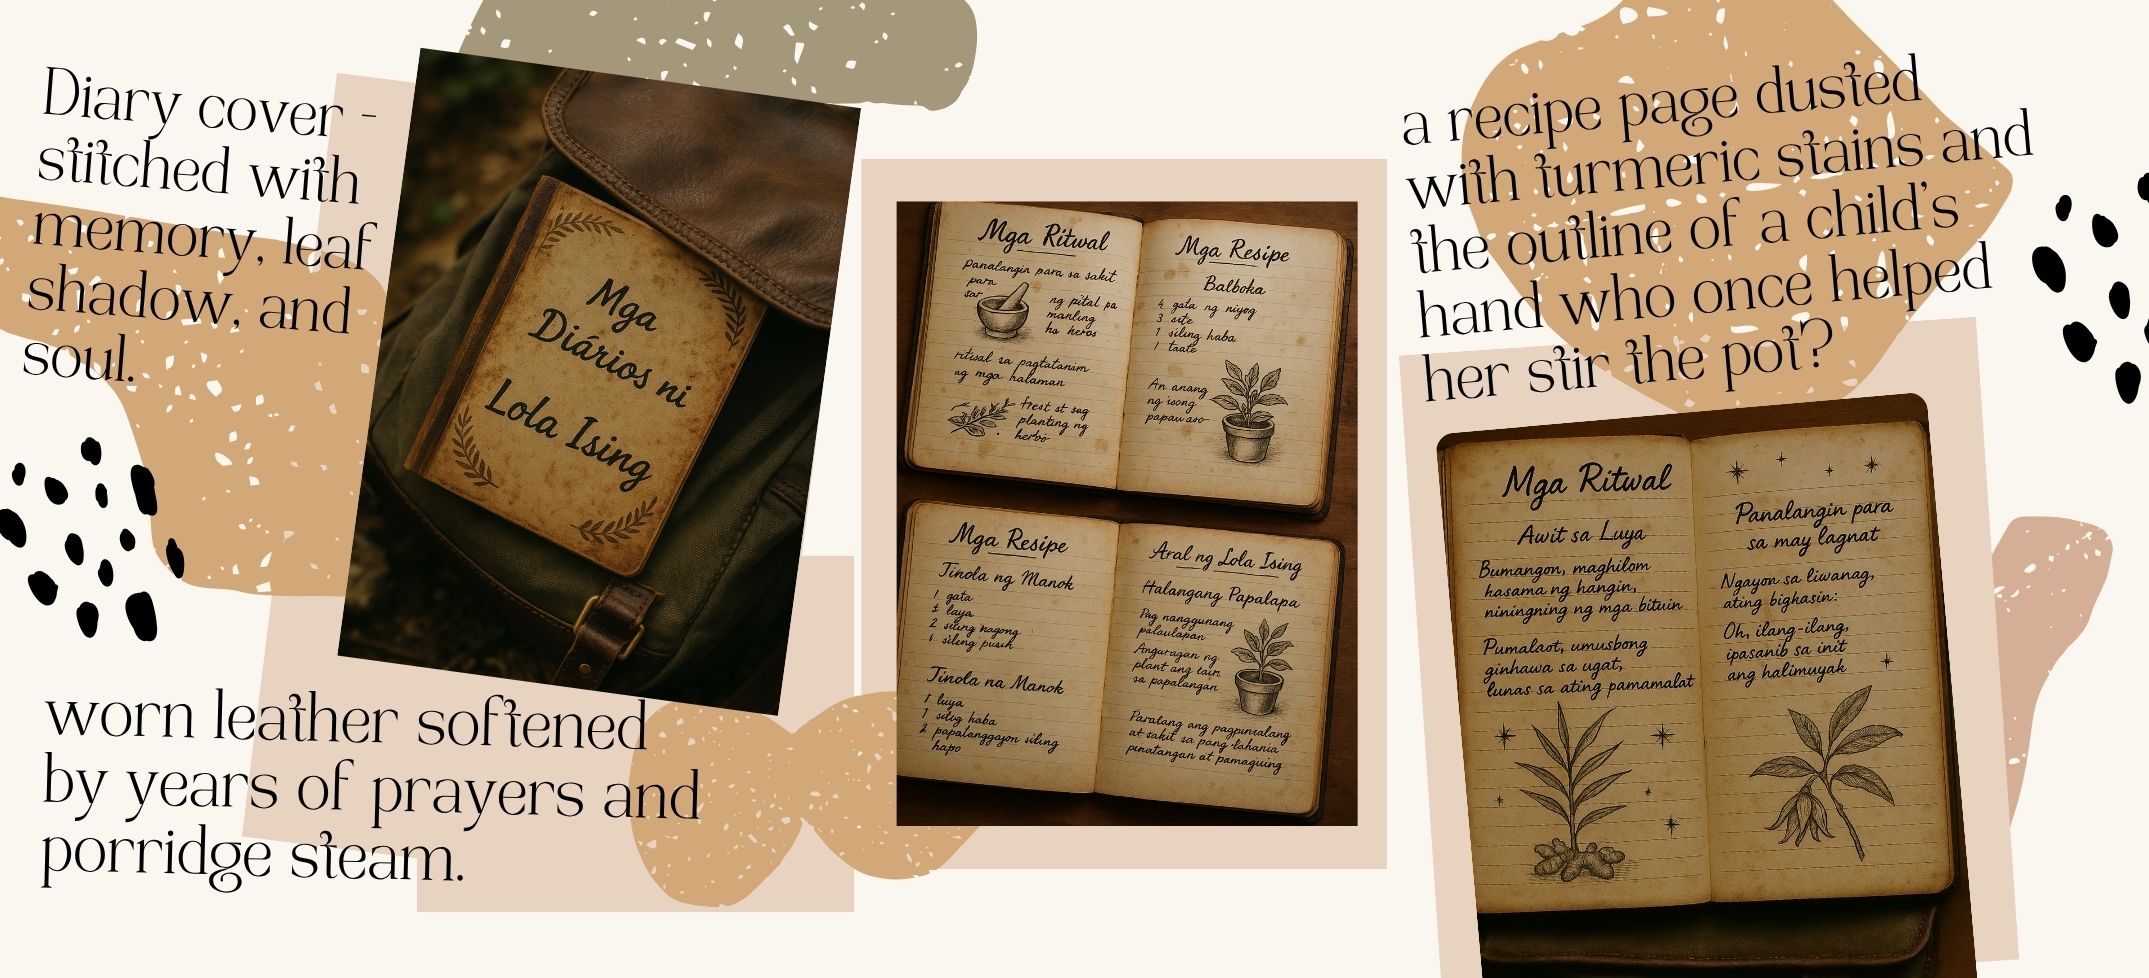 Diary cover -
stitched with
memory, leaf
shadow, and
soul.
Mga
Diários ni
Lola Ising
worn leather softened
by years of prayers and
porridge steam.
Mga Ritwal
panalangin para sa sakit
para
sar
ng pital pa
manling
ha heros
ritisal sa pagtatanim
ng mga halaman
frest st sag
planting ng
herbo
Mga Resipe
Balboka
4 gata ng niyog
3 site
1 siling haba
1 taate
An anang
ng isong
papau aso
Mga Resipe
Tinola ng Manok
1 gata
1 laya
2 siling nagong
1 siling pusuh
Tinola na Manok
1 luya
1 silig haba
2 papalanggayon siling
hapo
Aral ng Lola Ising
Halangang Papalapa
Pag nanggunang
palaulapan
Anguragan ng
plant ang tain
sa papalangan
Paralang ang pagpuntalang
at sakit sa pang-lahania
penatangan at pamaguing
a recipe page dusted
with turmeric stains and
the outline of a child's
hand who once helped
her stir the pot?
Mga Ritwal
Awit sa Luya
Bumangon, maghilom
kasama ng hangin,
niningning ng mga bituin
Pumalaot, umusbong
ginhawa sa ugat,
lunas sa ating pamamalat
Panalangin para
sa may lagnat
Ngayon sa liwanag,
ating bigkasin:
Oh, ilang-ilang,
ipasanib sa init
ang halimuyak